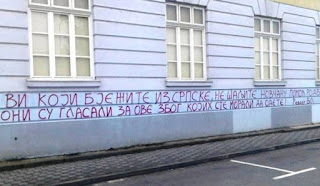 ВИ КОЈИ БЈЕЖИТЕ ИЗ СРПСКЕ, НЕ ШАЉИТЕ НОВЧАНУ ПОМОЋ
ОНИ СУ ГЛАСАЛИ ЗА ОВЕ ЗБОГ КОЈИХ СТЕ МОРАЛИ ДА ОДЕТЕ!